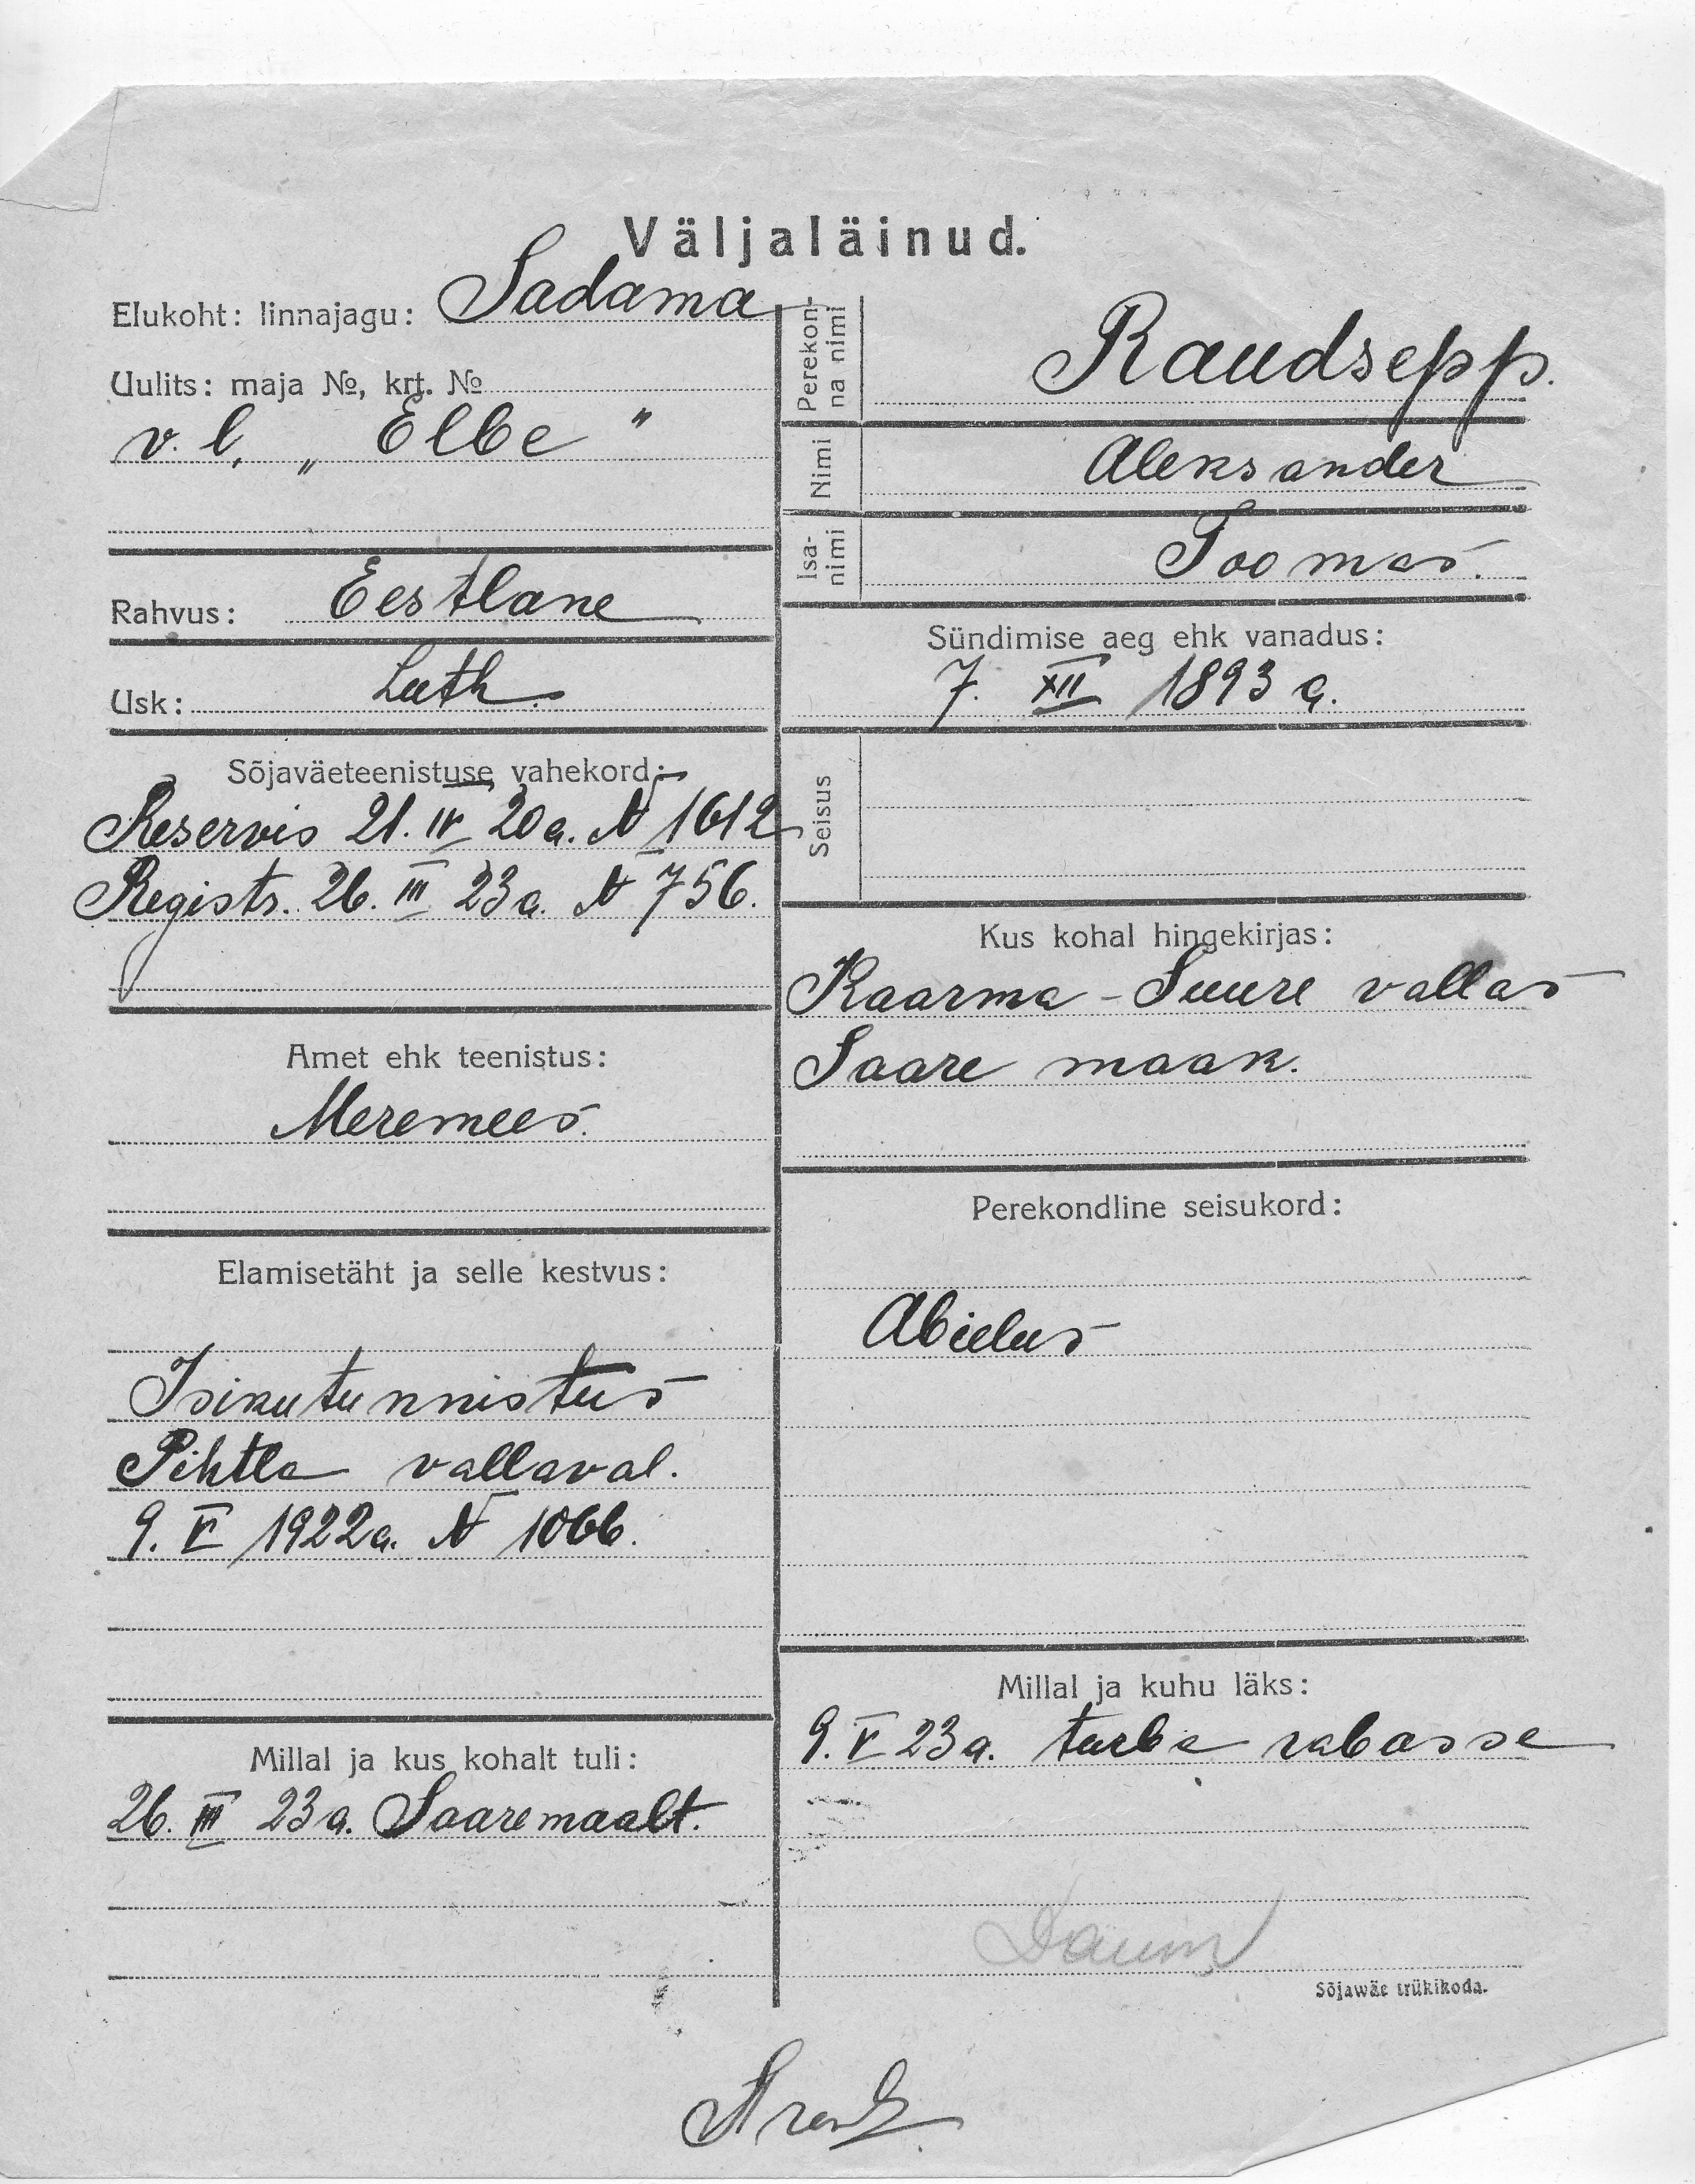 Väljaläinud.
Elukoht: linnajagu: Sadama
Uulits: maja №, krt. №
v. l. „Elbe"
Rahvus: Eestlane
Usk: Luth.
Sõjaväeteenistuse vahekord:
Reservis 21. IV 20 a. N 1612
Registr. 26. III 23 a. N 756.
Amet ehk teenistus:
Meremees.
Elamisetäht ja selle kestvus:
Isikutunnistus
Pihtla vallaval.
9. V 1922 a. N 1066.
Millal ja kus kohalt tuli:
26. III 23 a. Saaremaalt.
Perekon-
na nimi
Raudsepp.
Nimi
Aleksander
Isa-
nimi
Toomas.
Sündimise aeg ehk vanadus:
7. XII 1893 a.
Seisus
Kus kohal hingekirjas:
Kaarma-Suure vallas
Saare maak.
Perekondline seisukord:
Abielus
Millal ja kuhu läks:
9. V 23 a. turba rabasse
Sõjawäe trükikoda.